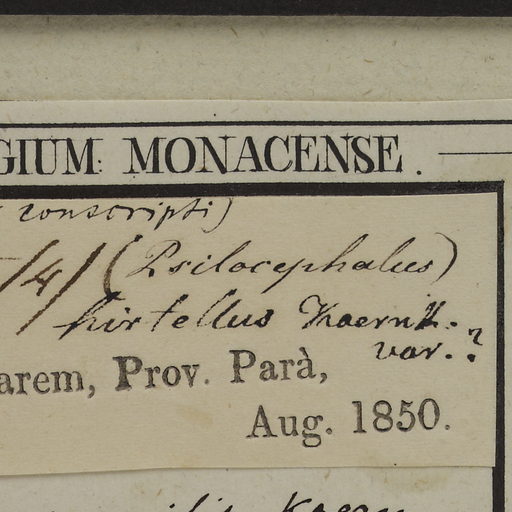 GIUM MONACENSE.
conscripti)
/4/ (Psilocephalus)
hirtellus Koernk.
var.?
arem, Prov. Parà,
Aug. 1850.